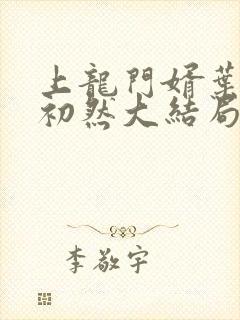 上龍門婿葉
初然大結局
李敬宇